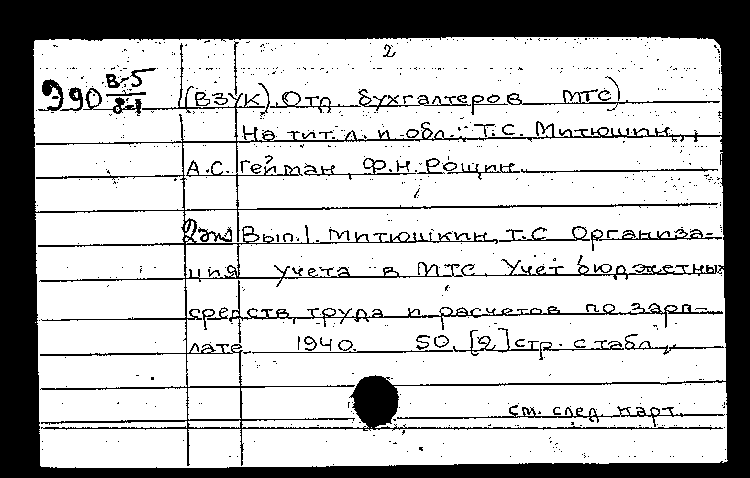 2
Э90 В-5/8-1 (ВЗУК). Отд. бухгалтеров МТС).
На тит. л. и обл.: Т.С. Митюшкин,
А.С. Гейман, Ф.Н. Рощин.
2 экз Вып. 1. Митюшкин, Т.С Организа-
ция учета в МТС. Учет бюджетных
средств, труда и расчетов по зарп-
лате 1940. 50, [2] стр. с табл.,
см. след. карт.